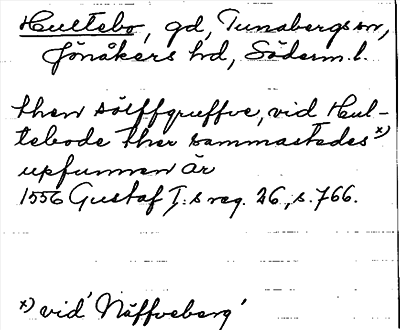 Hultebo, gd, Tunabergs sn,
Jönåkers hd, Söderm. l.
then sölffgruffve, vid Hul-
tebode ther sammastedes x)
upfunnen är
1556 Gustaf I:s reg. 26, s. 766.
x) vid 'Näffveberg'